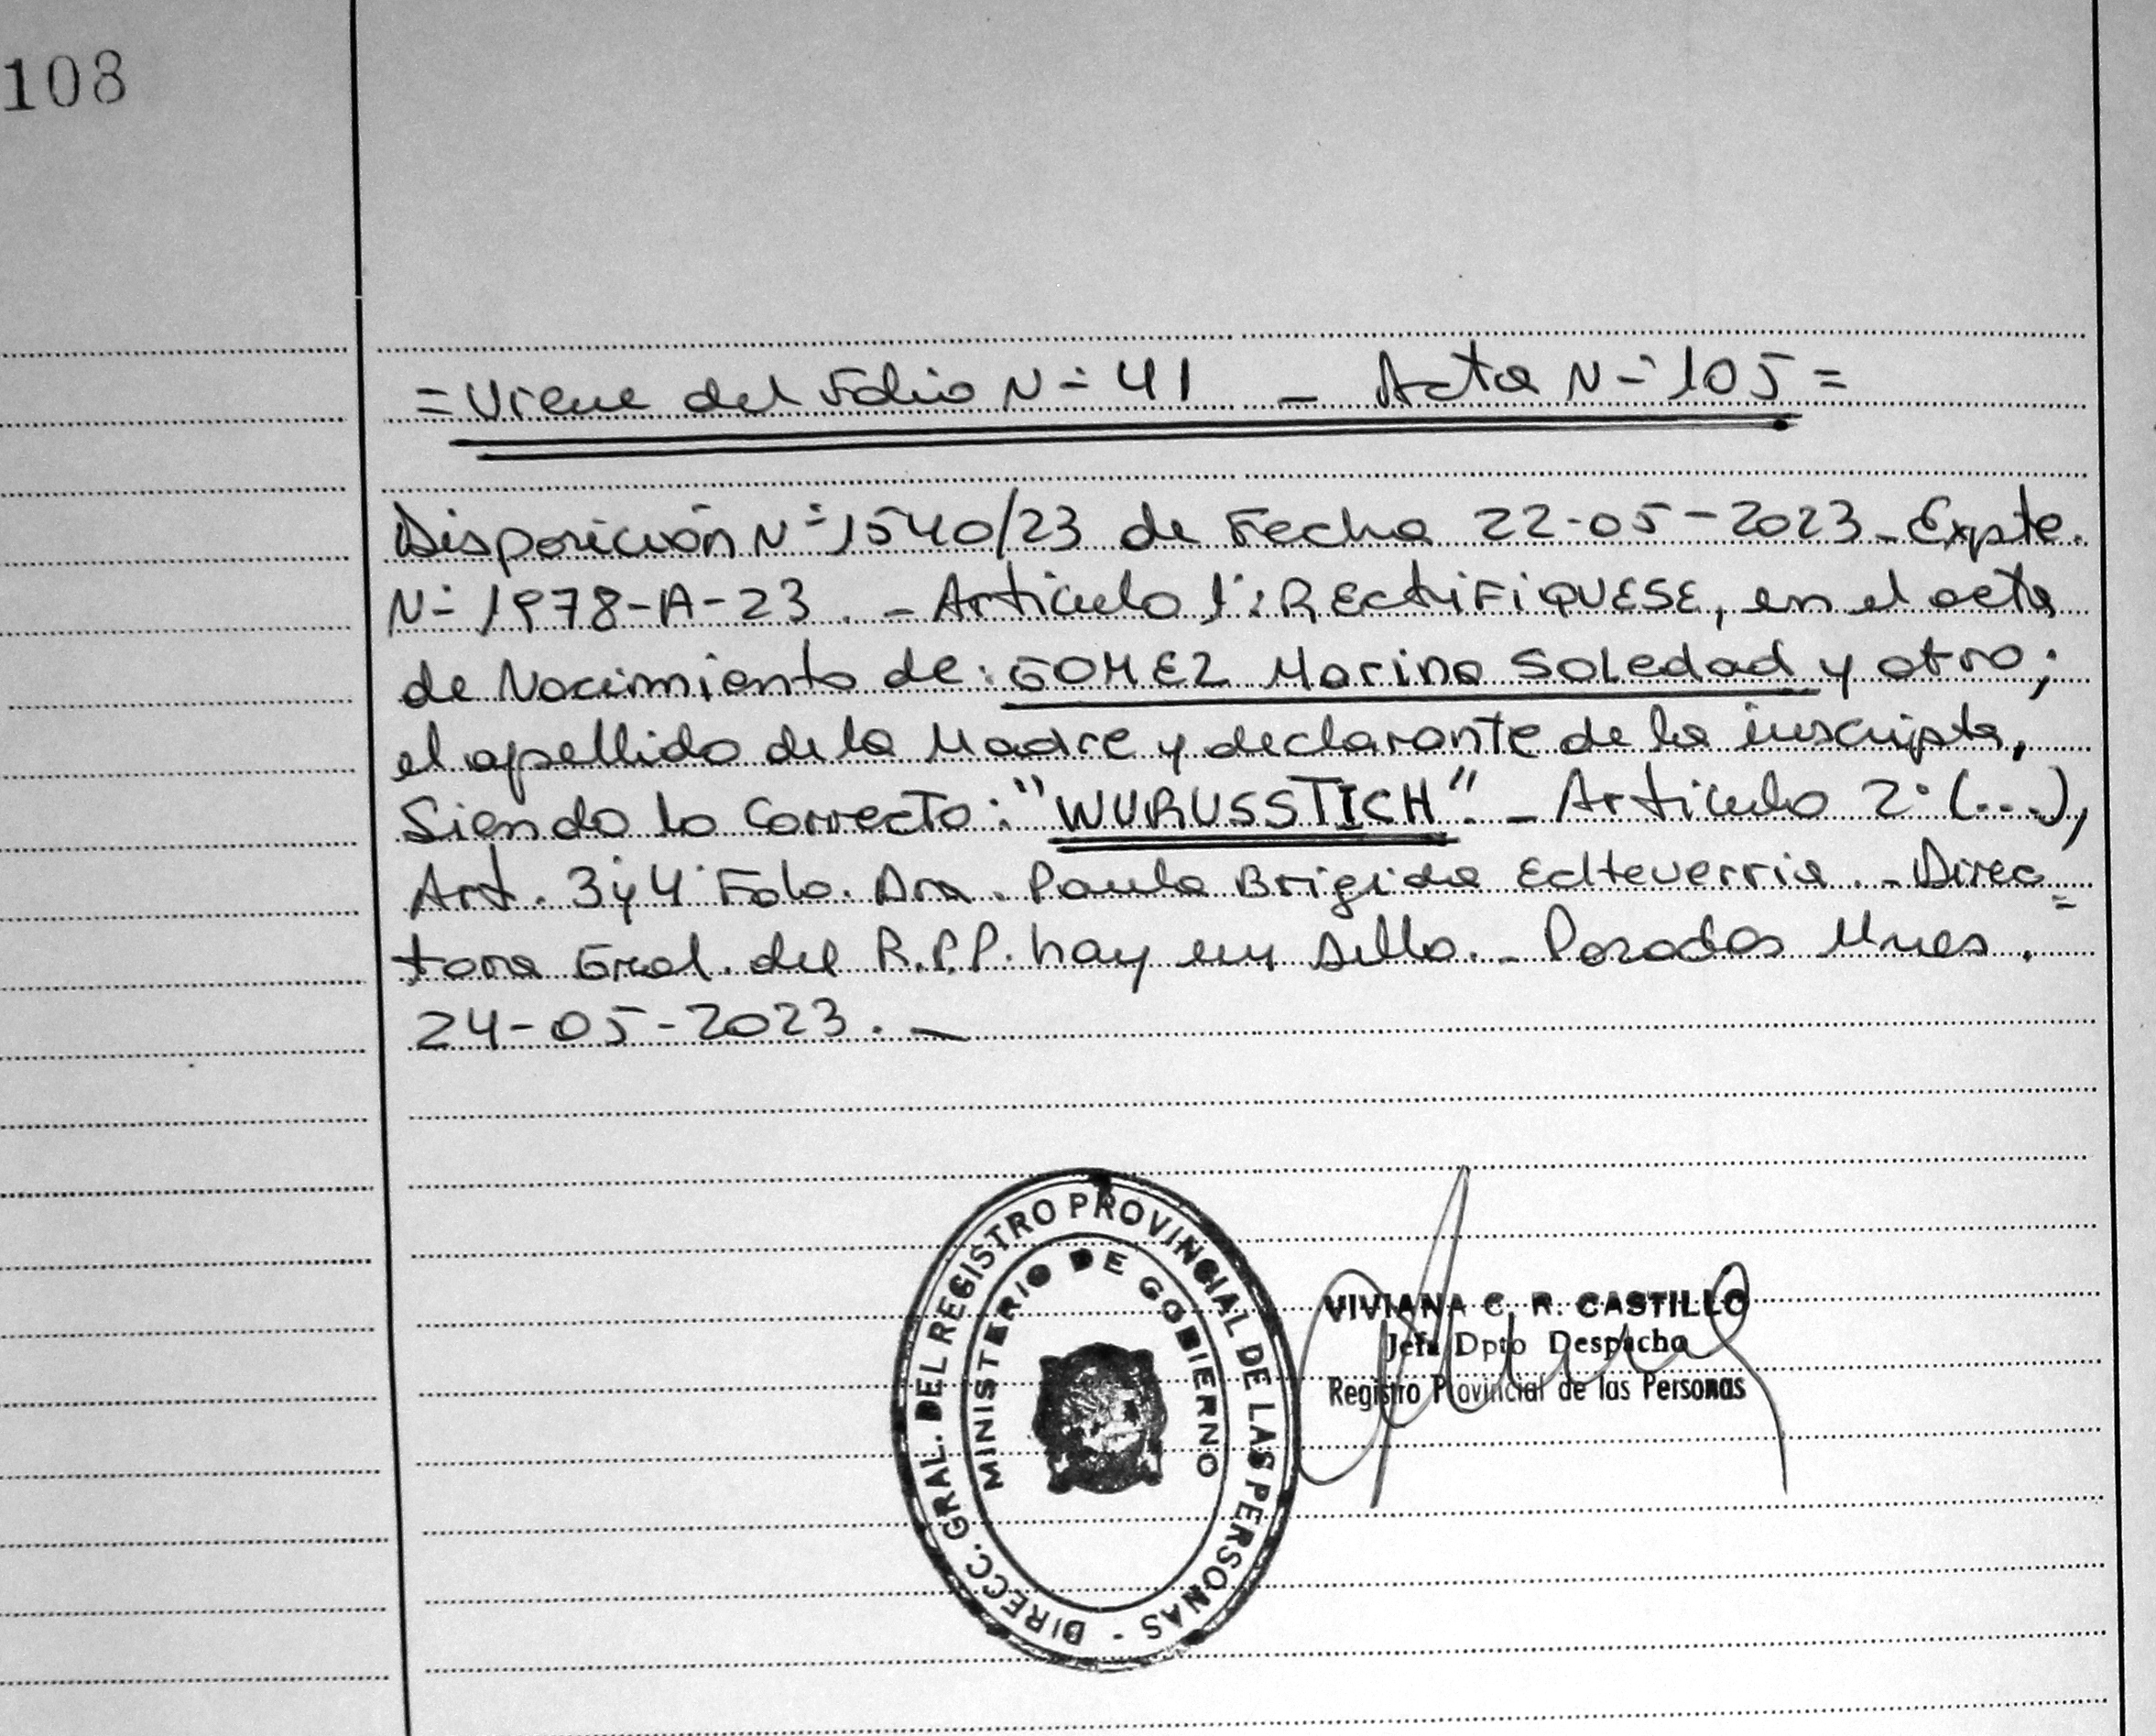 108
= Viene del Folio N° 41 - Acta N° 105 =
Disposición N° 1540/23 de Fecha 22-05-2023 - Expte.
N° 1978-A-23. - Articulo 1°: RECtiFiQUESE, en el acta
de Nacimiento de: GOMEZ Marina Soledad y otro;
el apellido de la Madre y declarante de la inscripta,
Siendo lo Correcto: "WURUSSTICH". - Articulo 2° (...),
Art. 3 y 4° Fdo. Dra. Paula Brigida Echeverria. - Direc=
tora Gral. del R.P.P. hay un sello. - Posadas Mnes.
24-05-2023. -
DIRECC. GRAL. DEL REGISTRO PROVINCIAL DE LAS PERSONAS -
MINISTERIO DE GOBIERNO
VIVIANA C. R. CASTILLO
Jefa Dpto Despacho
Registro Provincial de las Personas